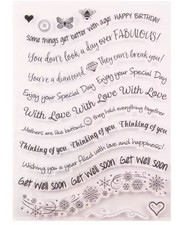 HAPPY BIRTHDAY
Some things get better with age
You don't look a day over FABULOUS!
You're a diamond, They can't break you!
Enjoy your Special Day Enjoy your Special Day
With Love With Love With Love With Love
Mothers are like buttons they hold everything together
Thinking of you. Thinking of you. Thinking of you.
Wishing you a year filled with love and happiness!
Get Well Soon Get Well soon Get Well Soon